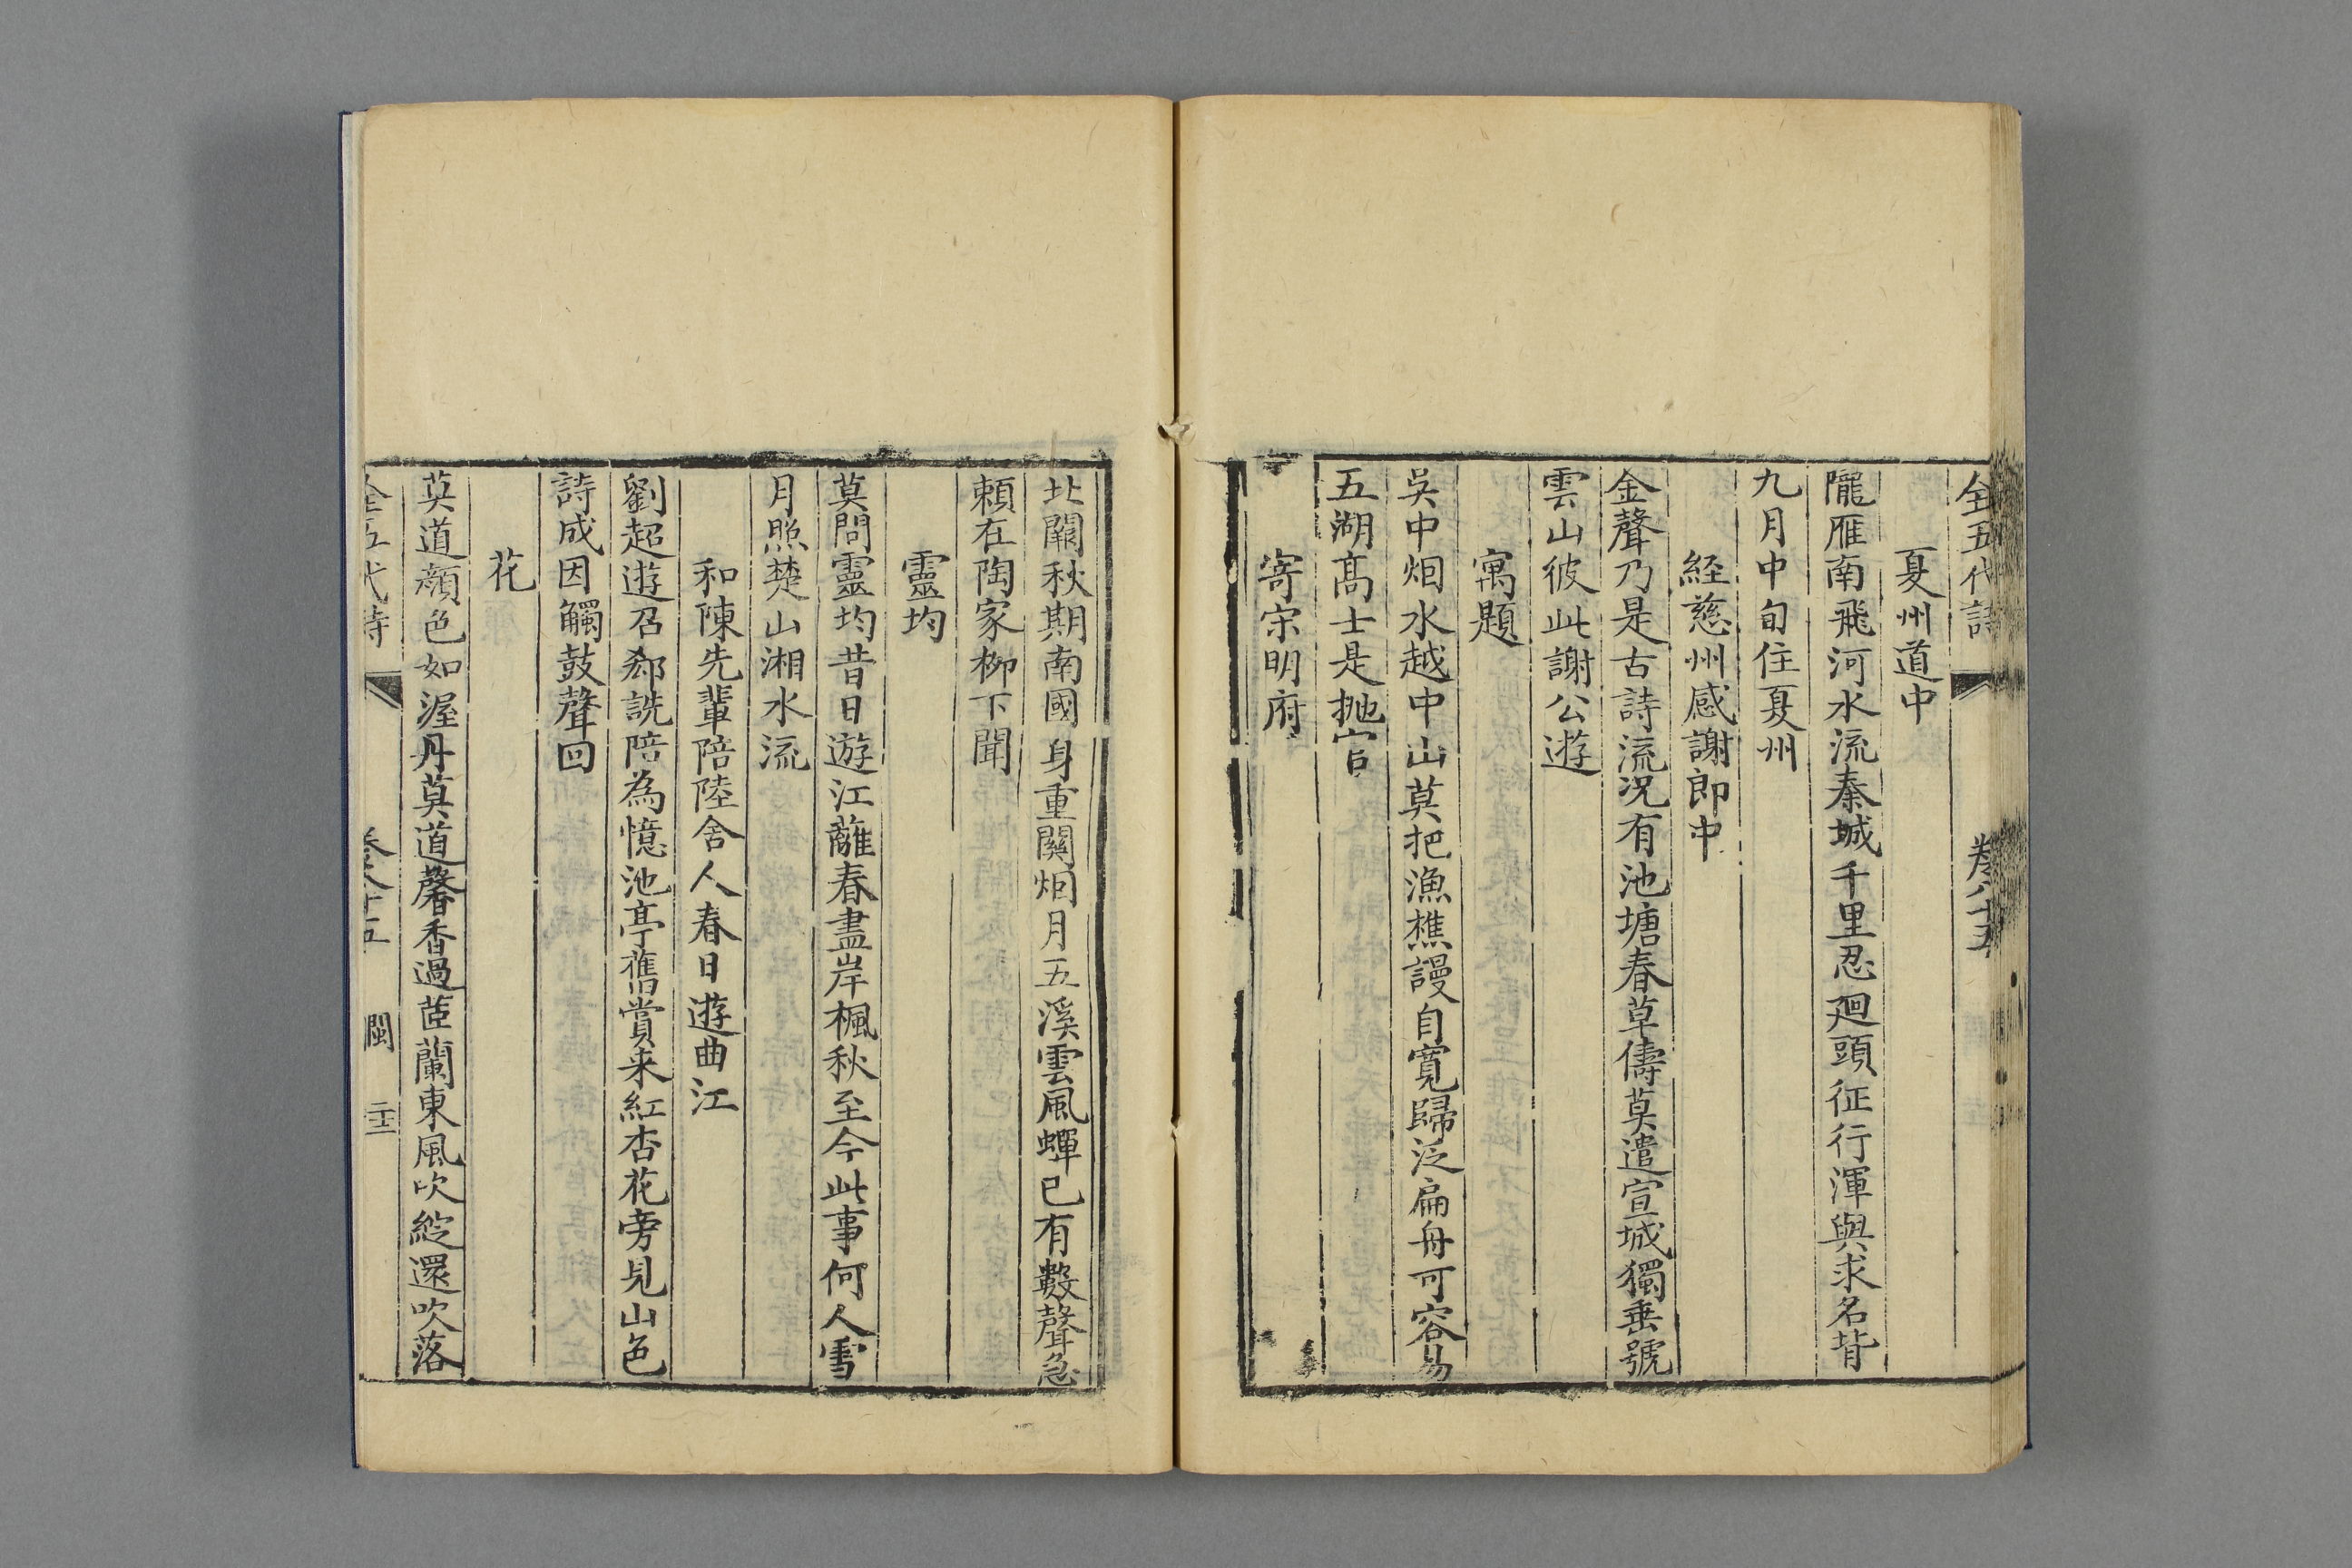 全五代詩 卷八十五
夏州道中
隴雁南飛河水流秦城千里忍廻頭征行渾與求名背
九月中旬住夏州
経慈州感謝郎中
金聲乃是古詩流况有池塘春草儔莫遣宣城獨垂號
雲山彼此謝公遊
寓題
吳中烟水越中山莫把漁樵謾自寬歸泛扁舟可容易
五湖髙士是抛官
寄宋明府
北闕秋期南國身重關烟月五溪雲風蟬已有數聲急
頼在陶家栁下聞
靈均
莫問靈均昔日遊江蘺春盡岸楓秋至今此事何人雪
月照楚山湘水流
和陳先輩陪陸舍人春日遊曲江
劉超遊召郄詵陪為憶池亭舊賞来紅杏花旁見山色
詩成因觸鼓聲回
花
莫道顔色如渥丹莫道馨香過茝蘭東風吹綻還吹落
全五代詩 卷八十五 閩 二十二